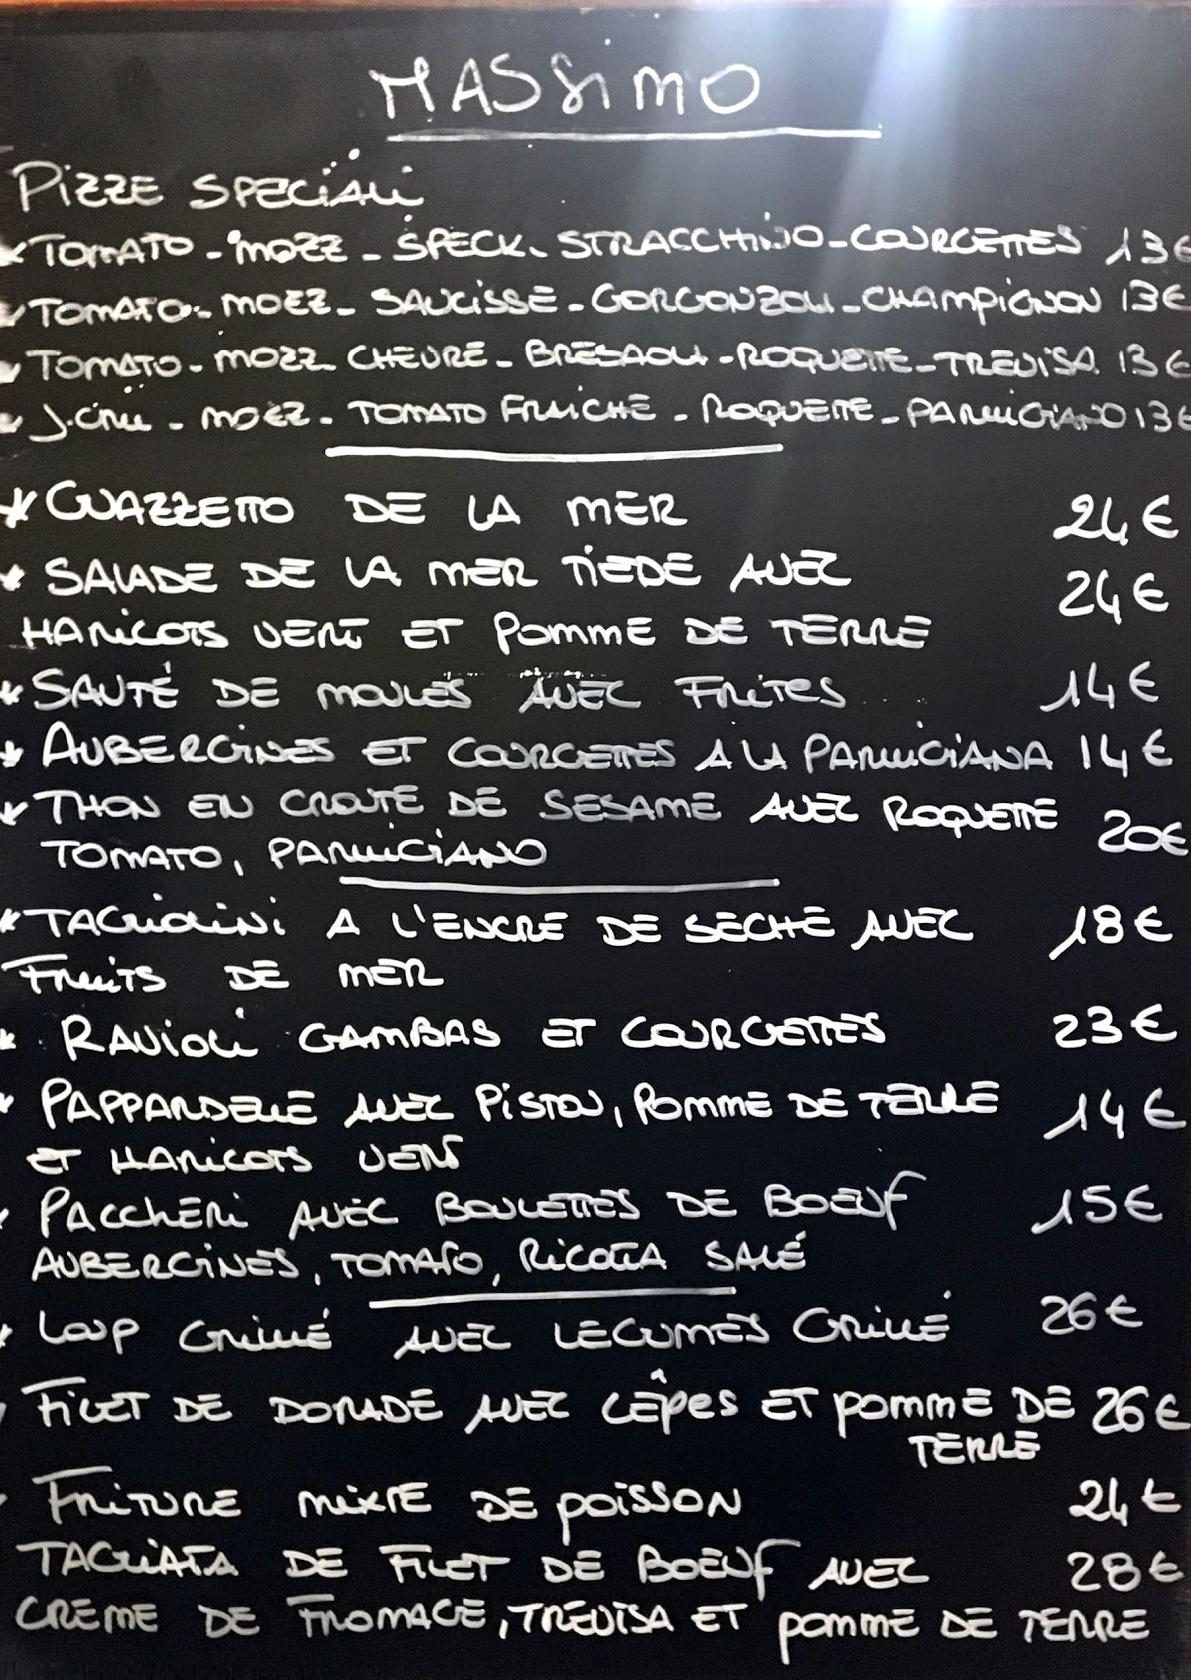 MASSIMO
PIZZE SPECIALI
* TOMATO - MOZZ - SPECK - STRACCHINO - COURGETTES 13€
* TOMATO - MOZZ - SAUCISSE - GORGONZOLA - CHAMPIGNON 13€
* TOMATO - MOZZ CHEVRE - BRESAOLA - ROQUETTE - TREVISA 13€
* J. CRU - MOZZ - TOMATO FRAICHE - ROQUETTE - PARMIGIANO 13€
* GUAZZETTO DE LA MER 24€
* SALADE DE LA MER TIEDE AVEC 24€
HARICOTS VERT ET POMME DE TERRE
* SAUTÉ DE MOULES AVEC FRITES 14€
* AUBERGINES ET COURGETTES A LA PARMIGIANA 14€
* THON EN CROUTE DE SESAME AVEC ROQUETTE 20€
TOMATO, PARMIGIANO
* TAGLIOLINI A L'ENCRE DE SECHE AVEC 18€
FRUITS DE MER
* RAVIOLI GAMBAS ET COURGETTES 23€
* PAPPARDELLE AVEC PISTOU, POMME DE TERRE 14€
ET HARICOTS VERTS
* PACCHERI AVEC BOULETTES DE BOEUF 15€
AUBERGINES, TOMATO, RICOTTA SALÉ
* LOUP GRILLÉ AVEC LEGUMES GRILLÉ 26€
* FILET DE DORADE AVEC CÊPES ET POMME DE 26€
TERRE
* FRITURE MIXTE DE POISSON 24€
TAGLIATA DE FILET DE BOEUF AVEC 28€
CREME DE FROMAGE, TREVISA ET POMME DE TERRE